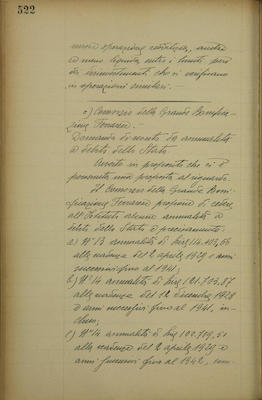 522
nuove operazioni
e meno liquida entro i limiti però
che si verificano
in operazioni similari. —
c) Consorzio della Grande Bonifica-
zione Ferrarese. —
Domanda di sconto di annualità
a debito dello Stato
in proposito che ci è
pervenuta una proposta al riguardo.
Il Consorzio della Grande Boni-
ficazione Ferrarese propone di cedere
all'Istituto alcune annualità a
debito dello Stato e precisamente:
a) N° 13 annualità di
alla scadenza del 2 aprile 1929 e anni
successivi fino al 1941;
b) N° 14 annualità di £ 121.703,57
alla scadenza del 12 dicembre 1928
e anni successivi fino al 1941, in-
cluso;
c) N° 14 annualità di £ 100.719,51
alla scadenza del 2 aprile 1929 e
anni successivi fino al 1942,